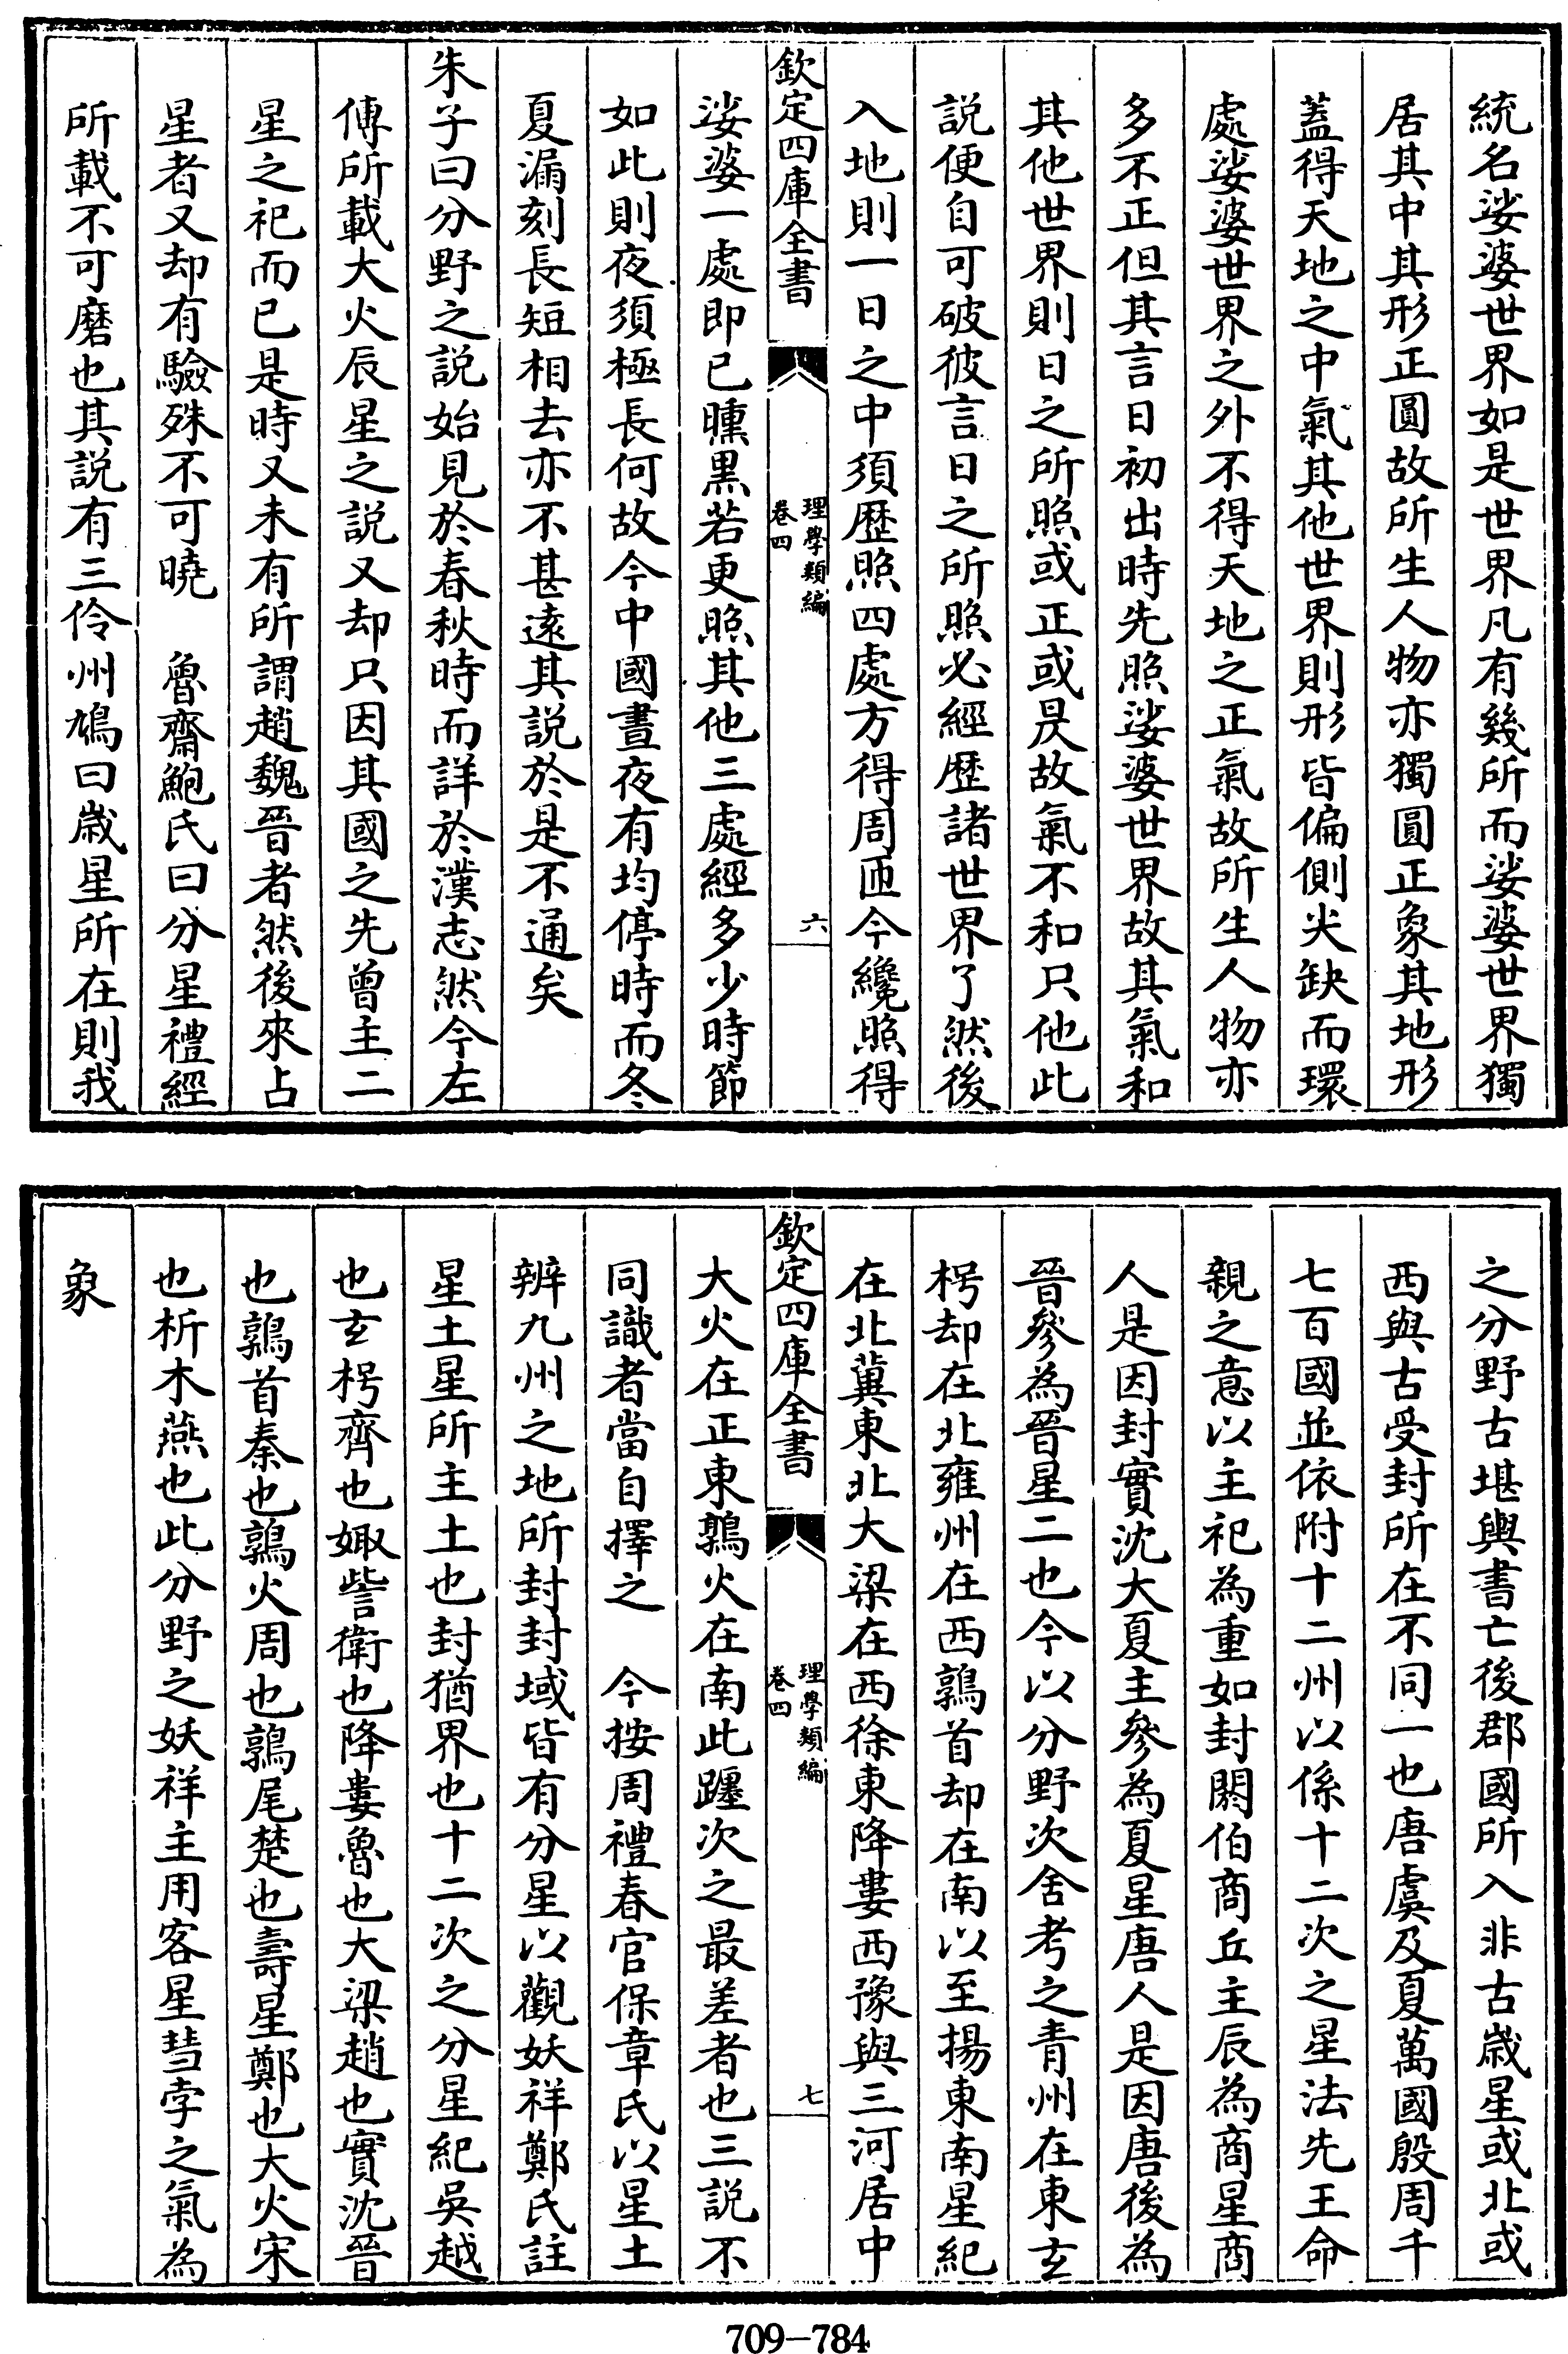 統名娑婆世界如是世界凡有幾所而娑婆世界獨
居其中其形正圓故所生人物亦獨圓正象其地形
蓋得天地之中氣其他世界則形皆偏側尖缺而環
處娑婆世界之外不得天地之正氣故所生人物亦
多不正但其言日初出時先照娑婆世界故其氣和
其他世界則日之所照或正或昃故氣不和只他此
説便自可破彼言日之所照必經歴諸世界了然後
入地則一日之中須歴照四處方得周匝今纔照得
欽定四庫全書
理學類編
卷四
六
娑婆一處即已曛黒若更照其他三處經多少時節
如此則夜須極長何故今中國晝夜有均停時而冬
夏漏刻長短相去亦不甚逺其説於是不通矣
朱子曰分野之説始見於春秋時而詳於漢志然今左
傳所載大火辰星之説又却只因其國之先曾主二
星之祀而已是時又未有所謂趙魏晉者然後來占
星者又却有驗殊不可曉　魯齋鮑氏曰分星禮經
所載不可磨也其説有三伶州鳩曰嵗星所在則我
之分野古堪輿書亡後郡國所入非古嵗星或北或
西與古受封所在不同一也唐虞及夏萬國殷周千
七百國並依附十二州以係十二次之星法先王命
親之意以主祀為重如封閼伯商丘主辰為商星商
人是因封實沈大夏主參為夏星唐人是因唐後為
晉參為晉星二也今以分野次舍考之青州在東玄
枵却在北雍州在西鶉首却在南以至揚東南星紀
在北冀東北大梁在西徐東降婁西豫與三河居中
欽定四庫全書
理學類編
卷四
七
大火在正東鶉火在南此躔次之最差者也三説不
同識者當自擇之　今按周禮春官保章氏以星土
辨九州之地所封封域皆有分星以觀妖祥鄭氏註
星土星所主土也封猶界也十二次之分星紀吳越
也玄枵齊也娵訾衛也降婁魯也大梁趙也實沈晉
也鶉首秦也鶉火周也鶉尾楚也壽星鄭也大火宋
也析木燕也此分野之妖祥主用客星彗孛之氣為
象
709-784